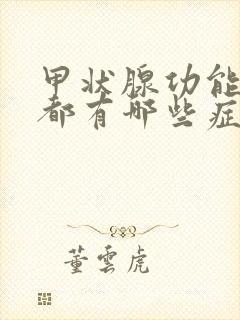 甲状腺功能
都有哪些症
董云虎